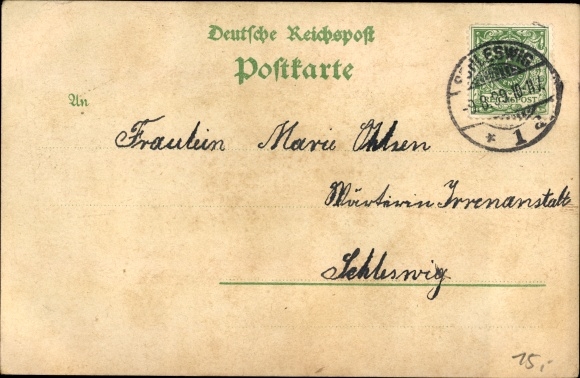 Deutsche Reichspost
Postkarte
An
SCHLESWIG
* 1
REICHSPOST
Fräulein Marie Ohlsen
Wärterin Irrenanstalt
Schleswig
15,-